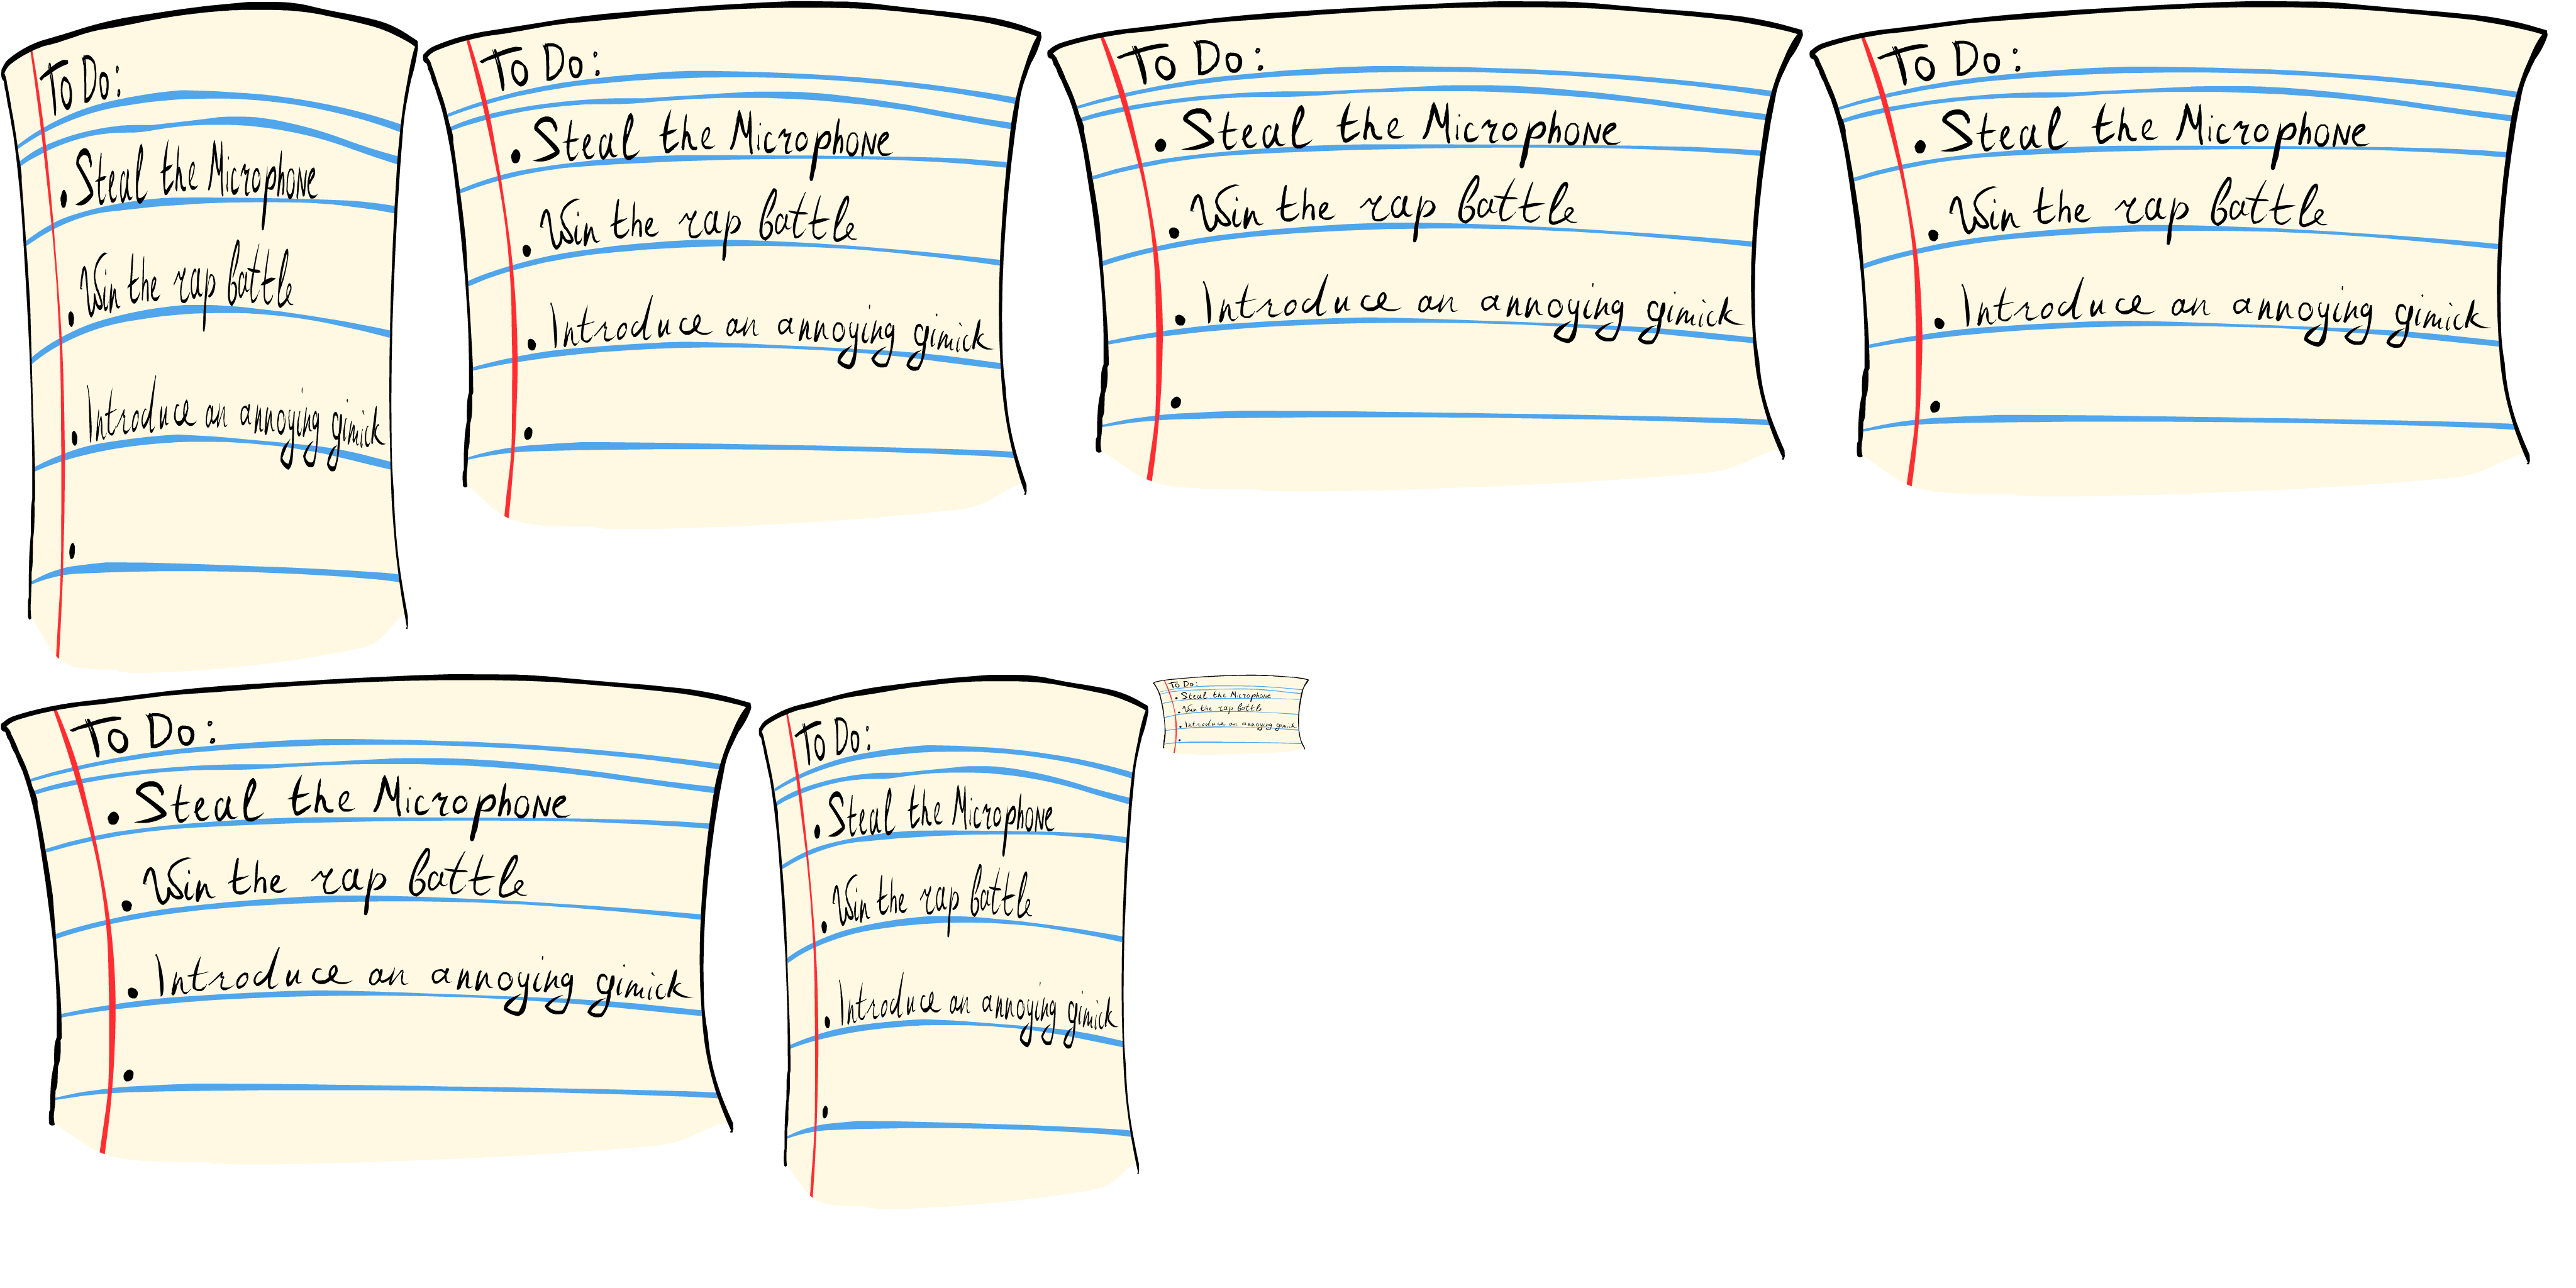 To Do:
. Steal the Microphone
. Win the rap battle
. Introduce an annoying gimick
.
To Do:
. Steal the Microphone
. Win the rap battle
. Introduce an annoying gimick
.
To Do:
. Steal the Microphone
. Win the rap battle
. Introduce an annoying gimick
.
To Do:
. Steal the Microphone
. Win the rap battle
. Introduce an annoying gimick
.
To Do:
. Steal the Microphone
. Win the rap battle
. Introduce an annoying gimick
.
To Do:
. Steal the Microphone
. Win the rap battle
. Introduce an annoying gimick
.
To Do:
. Steal the Microphone
. Win the rap battle
. Introduce an annoying gimick
.